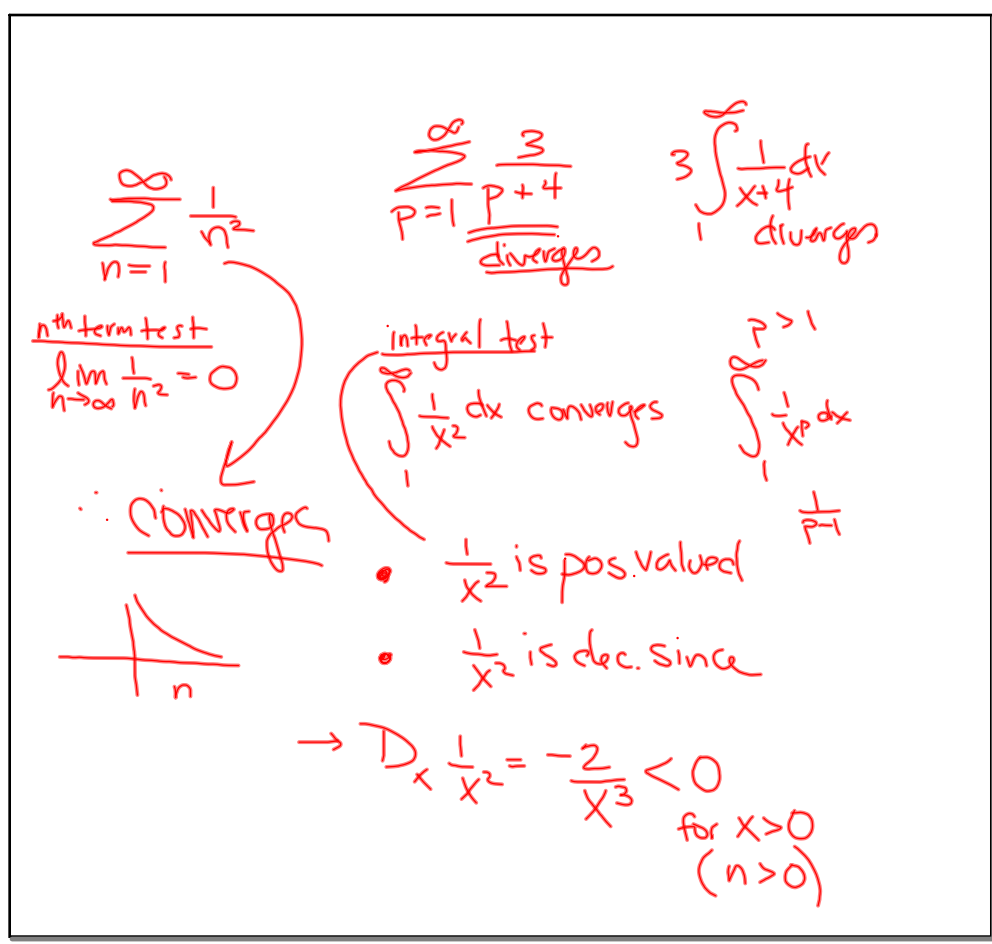 ∞
∑ 1/n²
n=1
nth term test
lim 1/n² = 0
n→∞
∴ Converges
n
∞
∑ 3/(p+4)
p=1
diverges
3 ∫₁^∞ 1/(x+4) dx
diverges
integral test
∫₁^∞ 1/x² dx converges
p>1
∫₁^∞ 1/xᵖ dx
1/(p-1)
• 1/x² is pos. valued
• 1/x² is dec. since
→ Dₓ 1/x² = -2/x³ < 0
for x>0
(n>0)